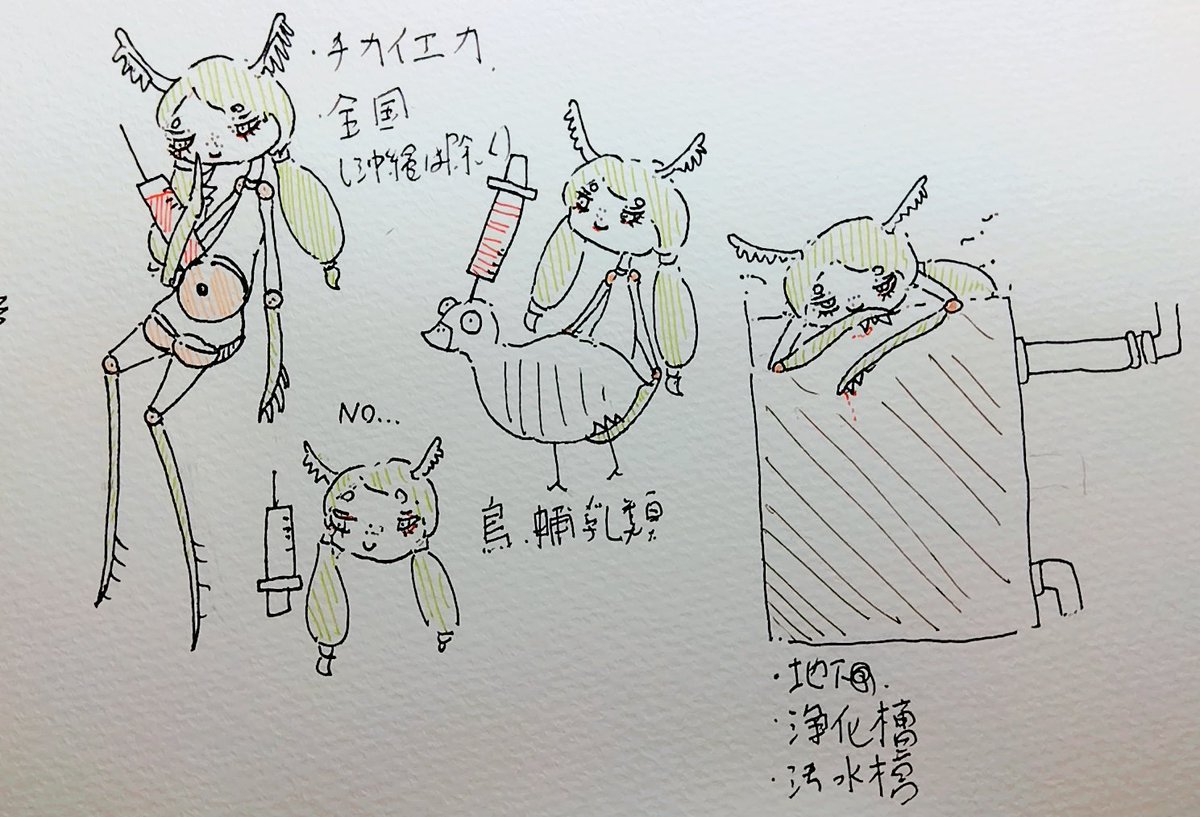 ・チカイエカ
・全国
(沖縄は除く)
NO...
鳥.哺乳類
・地下
・浄化槽
・汚水槽